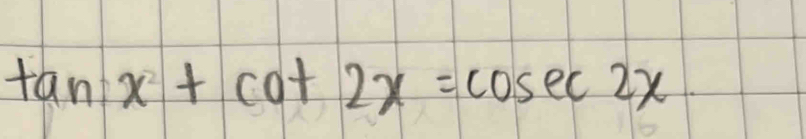 tan x + cot 2x = cosec 2x